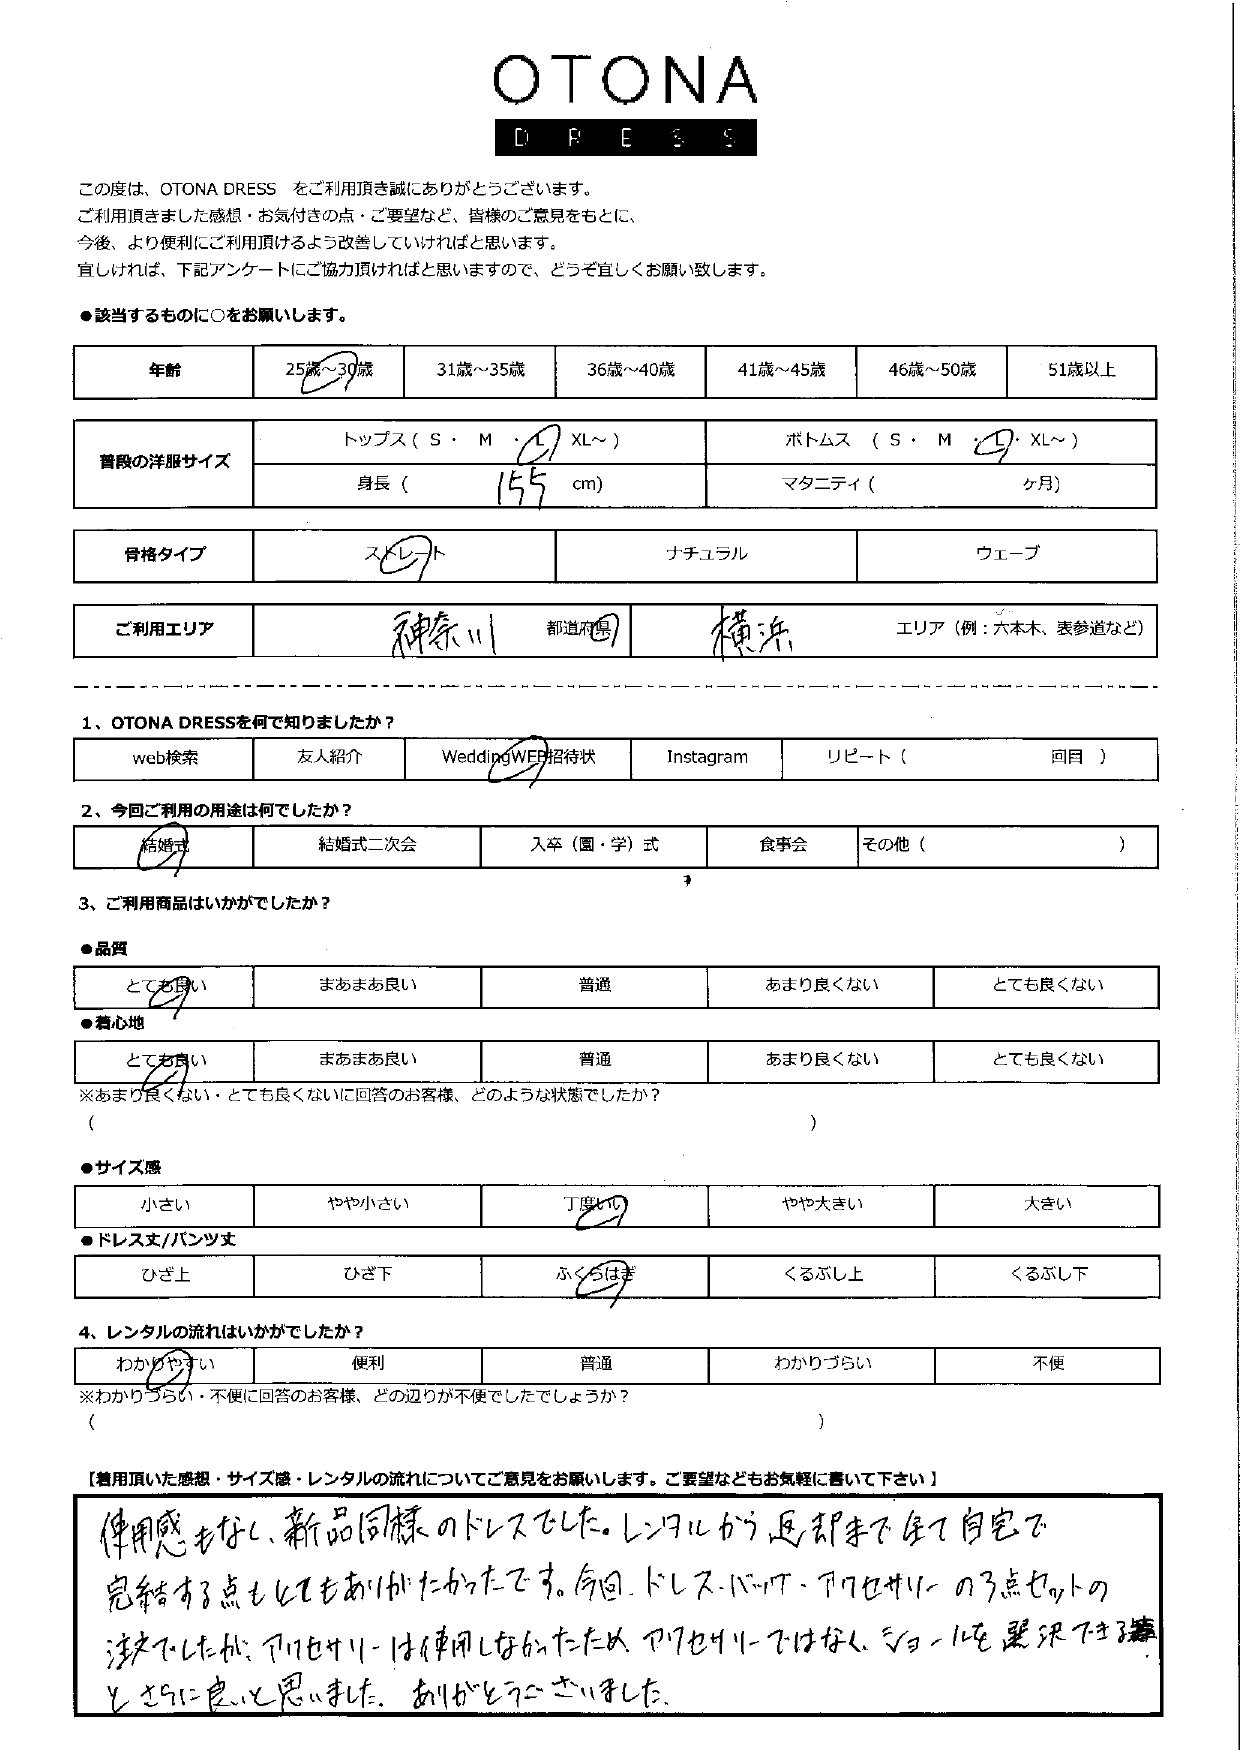 OTONA
DRESS
この度は、OTONA DRESS　をご利用頂き誠にありがとうございます。
ご利用頂きました感想・お気付きの点・ご要望など、皆様のご意見をもとに、
今後、より便利にご利用頂けるよう改善していければと思います。
宜しければ、下記アンケートにご協力頂ければと思いますので、どうぞ宜しくお願い致します。
●該当するものに○をお願いします。
年齢 25歳～30歳 31歳～35歳 36歳～40歳 41歳～45歳 46歳～50歳 51歳以上
普段の洋服サイズ トップス ( S ・ M ・ L ・ XL～ ) ボトムス ( S ・ M ・ L ・ XL～ )
身長 ( 155 cm) マタニティ ( ヶ月)
骨格タイプ ストレート ナチュラル ウェーブ
ご利用エリア 神奈川 都道府県 横浜 エリア（例：六本木、表参道など）
1、OTONA DRESSを何で知りましたか？
web検索 友人紹介 WeddingWEB招待状 Instagram リピート（ 回目 ）
2、今回ご利用の用途は何でしたか？
結婚式 結婚式二次会 入卒（園・学）式 食事会 その他（ ）
3、ご利用商品はいかがでしたか？
●品質
とても良い まあまあ良い 普通 あまり良くない とても良くない
●着心地
とても良い まあまあ良い 普通 あまり良くない とても良くない
※あまり良くない・とても良くないに回答のお客様、どのような状態でしたか？
（ ）
●サイズ感
小さい やや小さい 丁度いい やや大きい 大きい
●ドレス丈/パンツ丈
ひざ上 ひざ下 ふくらはぎ くるぶし上 くるぶし下
4、レンタルの流れはいかがでしたか？
わかりやすい 便利 普通 わかりづらい 不便
※わかりづらい・不便に回答のお客様、どの辺りが不便でしたでしょうか？
（ ）
【着用頂いた感想・サイズ感・レンタルの流れについてご意見をお願いします。ご要望などもお気軽に書いて下さい】
使用感もなし、新品同様のドレスでした。レンタルから返却まで全て自宅で
完結する点もとてもありがたかったです。今回、ドレス・バッグ・アクセサリーの3点セットの
注文でしたが、アクセサリーは使用しなかったため、アクセサリーではなく、ショールを選択できる
とさらに良いと思いました。ありがとうございました。